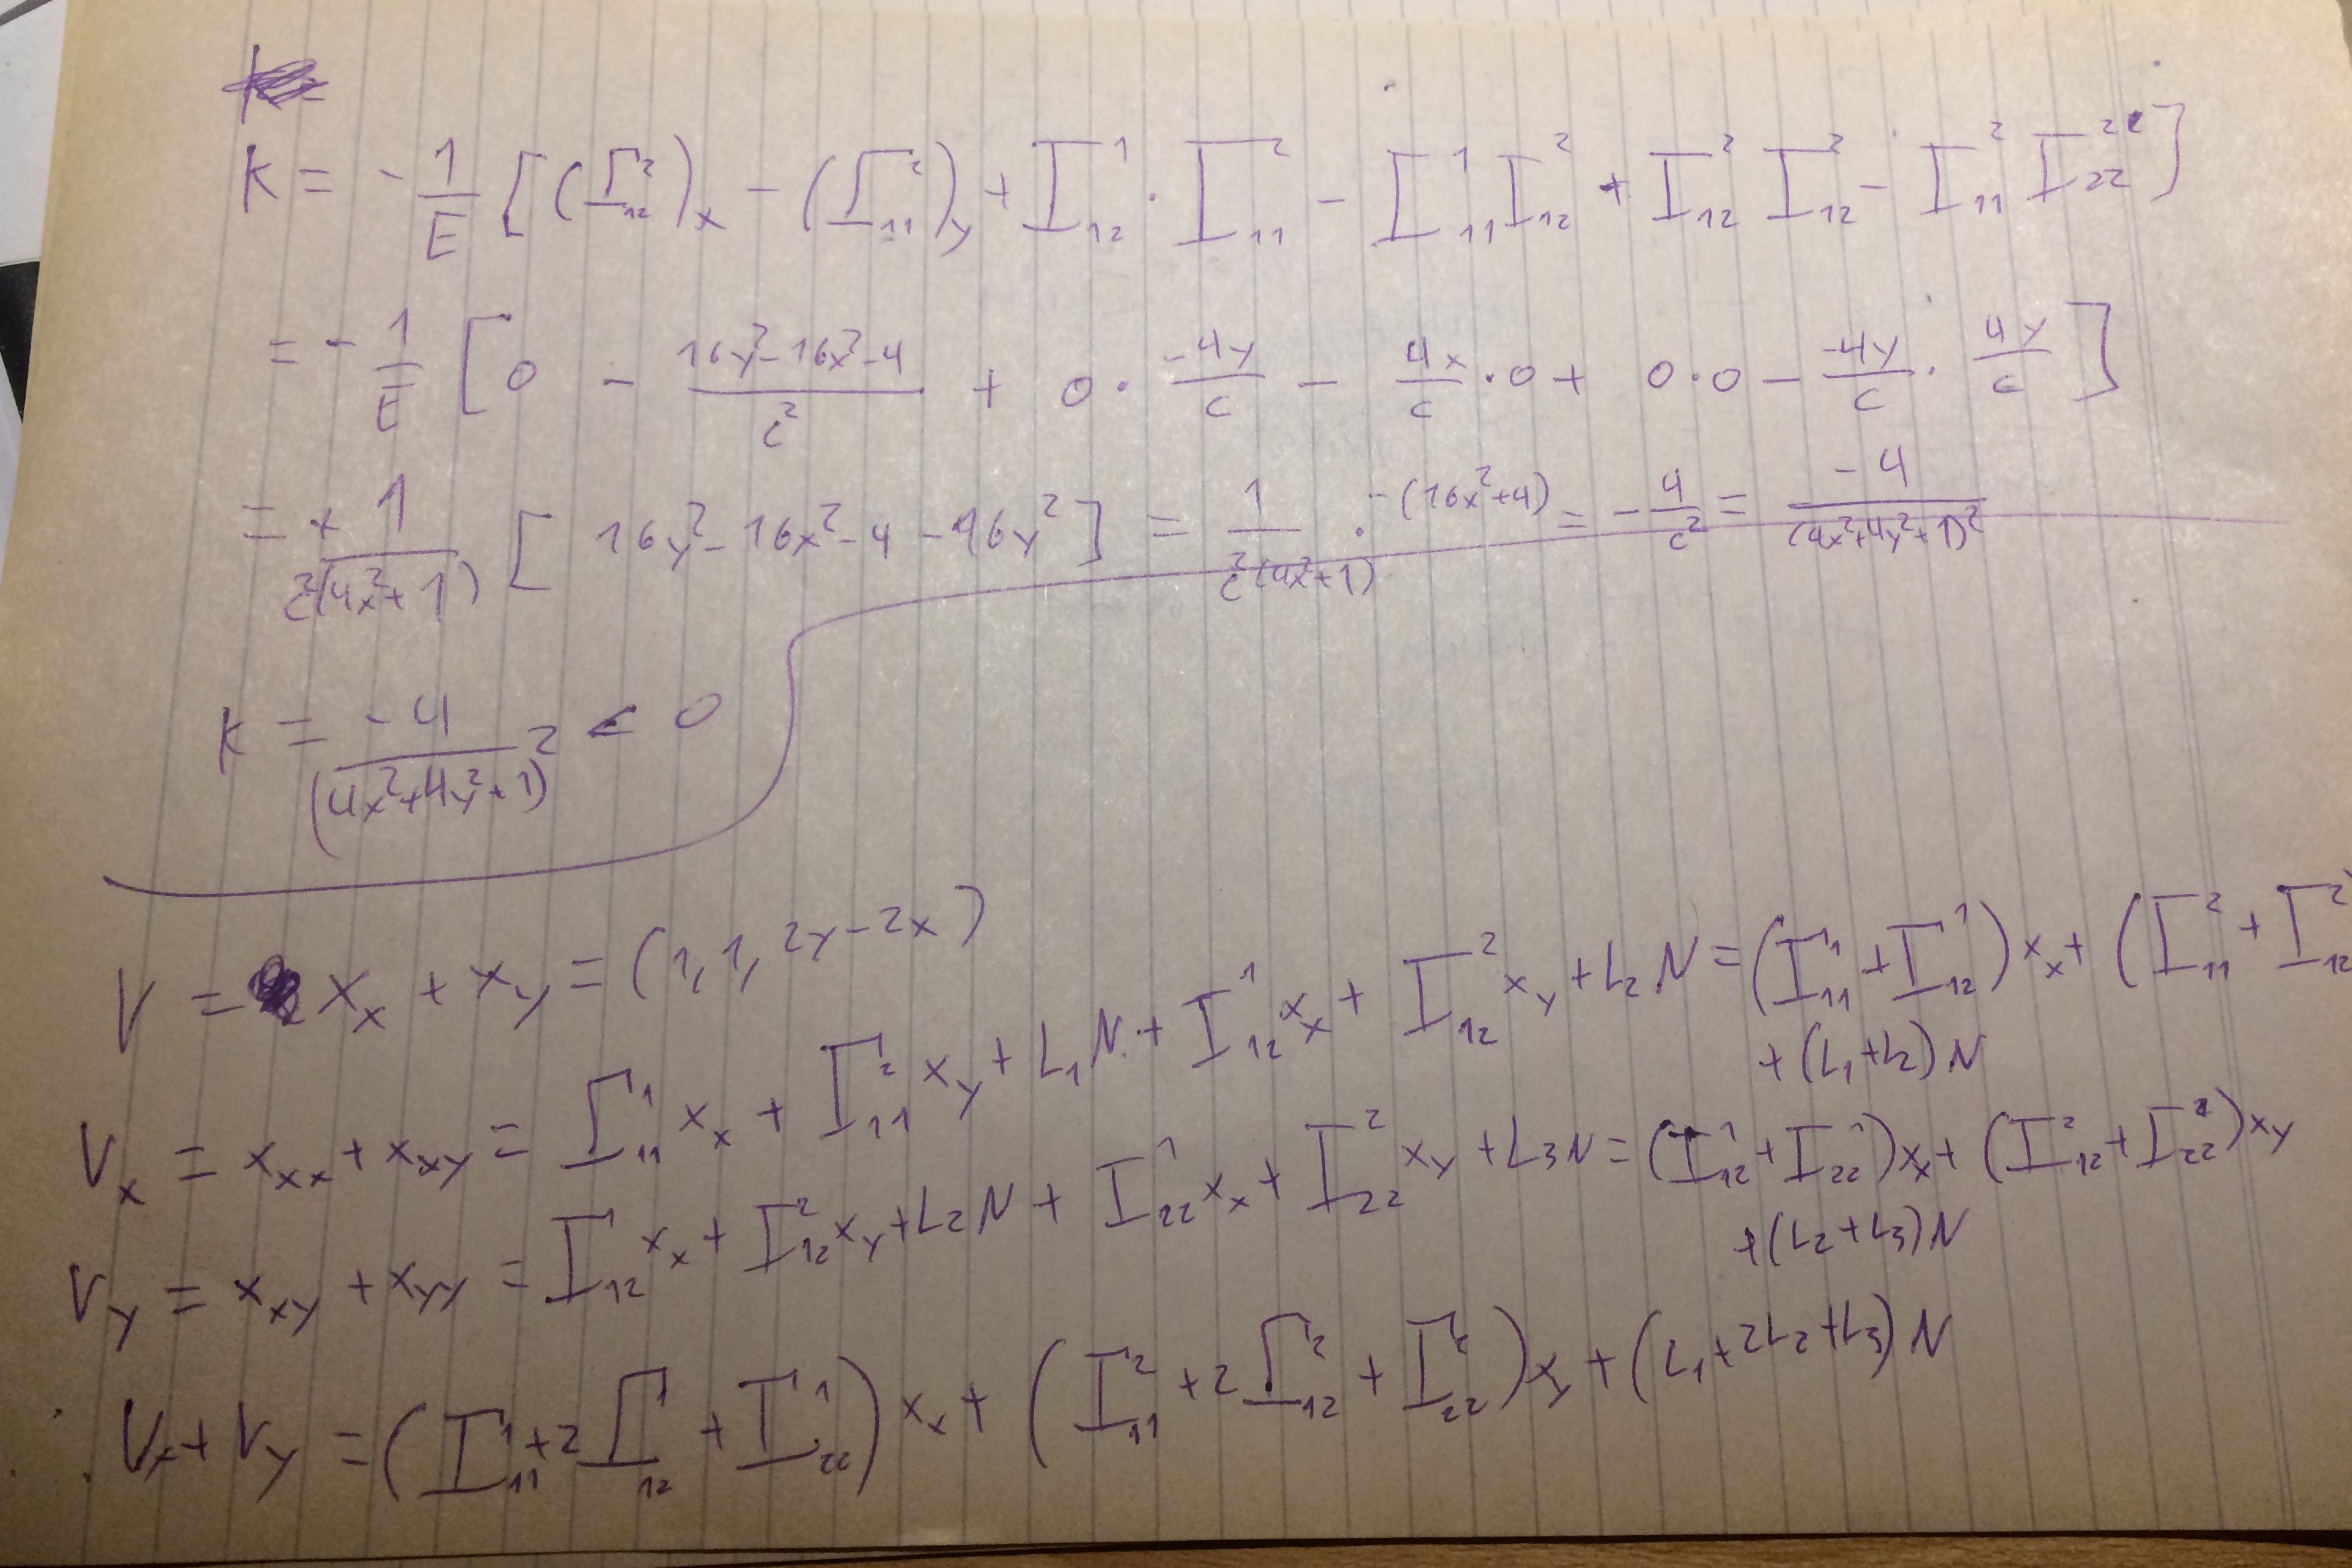 K = - 1/E [ (Γ²₁₂)ₓ - (Γ²₁₁)_y + Γ¹₁₂ · Γ²₁₁ - Γ¹₁₁ Γ²₁₂ + Γ²₁₂ Γ²₁₂ - Γ²₁₁ Γ²₂₂ ]
= - 1/E [ 0 - (16y²-16x²-4)/c² + 0 · (-4y)/c - 4x/c · 0 + 0·0 - (-4y)/c · 4y/c ]
= + 1/(c²(4x²+1)) [ 16y²-16x²-4-16y² ] = 1/(c²(4x²+1)) · -(16x²+4) = - 4/c² = -4/(4x²+4y²+1)²
K = -4/(4x²+4y²+1)² < 0
V = Xₓ + X_y = (1,1, 2y-2x)
Vₓ = Xₓₓ + Xₓ_y = Γ¹₁₁ Xₓ + Γ²₁₁ X_y + L₁N + Γ¹₁₂ Xₓ + Γ²₁₂ X_y + L₂N = (Γ¹₁₁ + Γ¹₁₂) Xₓ + (Γ²₁₁ + Γ²₁₂
+ (L₁+L₂) N
V_y = Xₓ_y + X_yy = Γ¹₁₂ Xₓ + Γ²₁₂ X_y + L₂N + Γ¹₂₂ Xₓ + Γ²₂₂ X_y + L₃N = (Γ¹₁₂ + Γ¹₂₂) Xₓ + (Γ²₁₂ + Γ²₂₂) X_y
+ (L₂+L₃) N
∴ Vₓ + V_y = (Γ¹₁₁ + 2Γ¹₁₂ + Γ¹₂₂) Xₓ + (Γ²₁₁ + 2Γ²₁₂ + Γ²₂₂) X_y + (L₁+2L₂+L₃) N